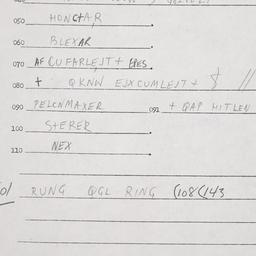 050 HONCTAR.
060 BLEXAR.
070 AF CUFARLEJT + EPES.
080 + QKNW EJXCUMLEJT +
090 PELCNMAXER 091 + QAP HITLEN
100 STERER
110 NEX.
RUNG QGL RING (108(143